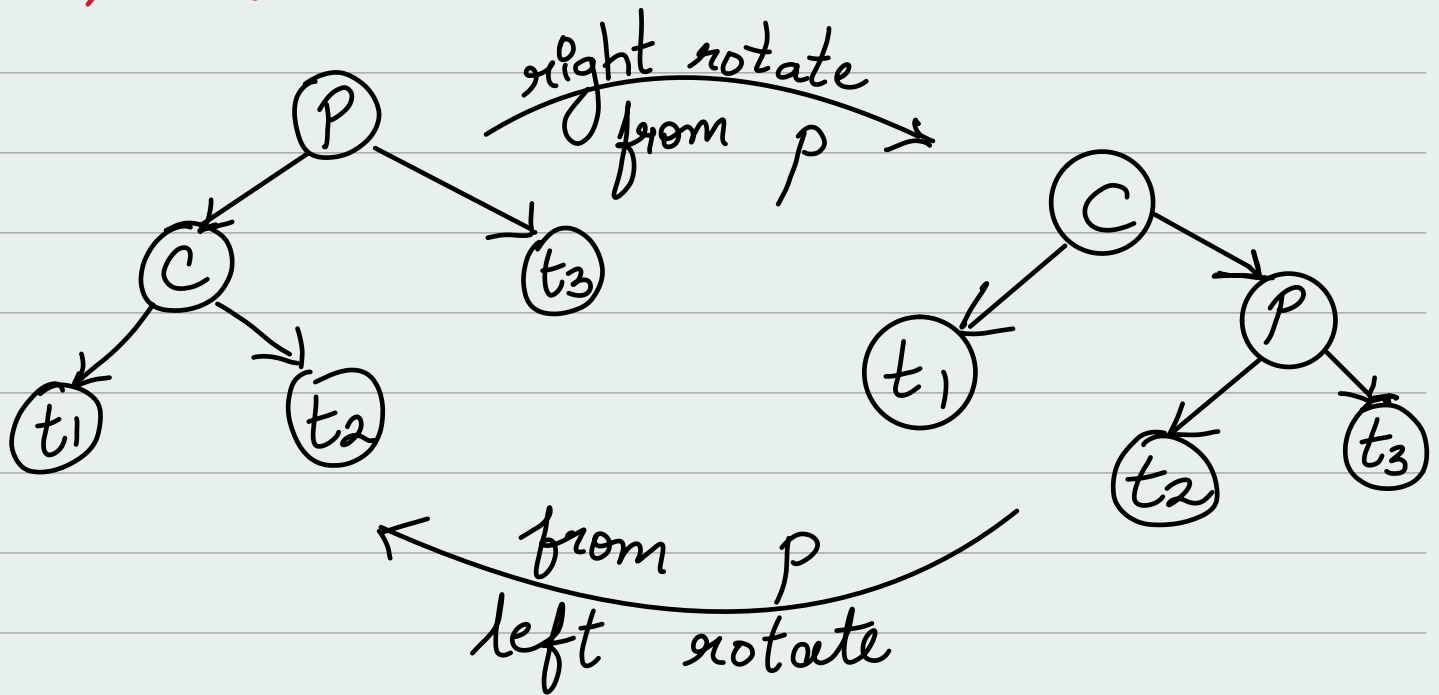 right rotate
from p
P
C
t3
t1
t2
C
t1
P
t2
t3
from p
left rotate